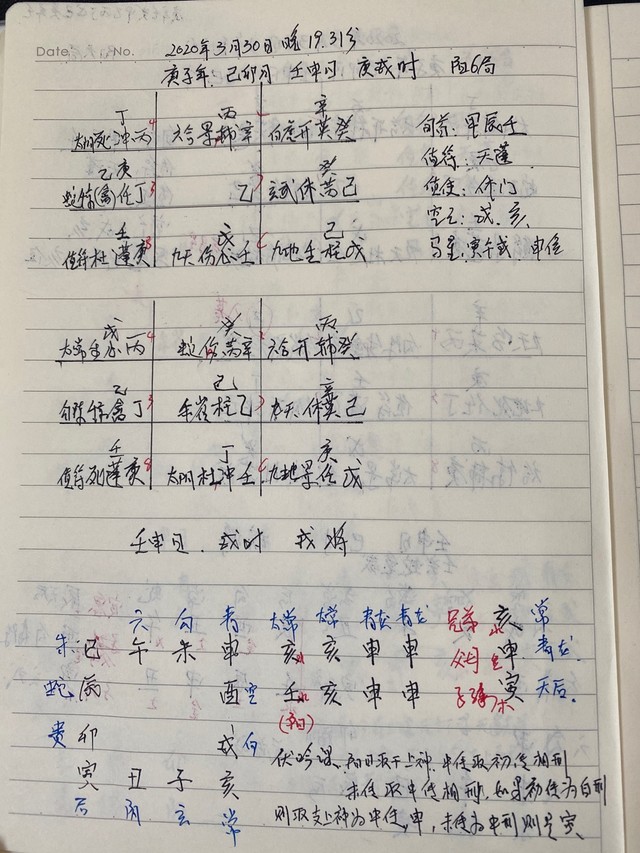 Date. No. 2020年3月30日晚19.31分
庚子年 己卯月 壬申日 庚戌时 阳6局
丁 丙 辛
太阴死冲丙 六合景辅辛 白虎开英癸
旬首:甲辰壬
乙庚 癸
值符:天蓬
蛇惊(禽)任丁 乙 玄武休芮己
值使:休门
空亡:戌.亥
壬 戊 己
值符杜蓬庚 九天伤心壬 九地生柱戊
马星:寅午戌.申位
戊 癸 丙
太常生心丙 蛇伤芮辛 六合开辅癸
乙 己 辛
勾陈惊禽丁 朱雀柱乙 九天休英己
壬 丁 庚
值符死蓬庚 太阴杜冲壬 九地景任戊
壬申日.戌时 戌将
六 勾 青 太常 太常 青龙 青龙 兄弟 亥 常
朱 巳 午 未 申 亥 亥 申 申 父母 申 青龙
蛇 辰 酉 空 壬 亥 申 申 子孙 寅 天后
贵 卯 戌 白
寅 丑 子 亥
后 阴 玄 常
伏吟课.阳日取干上神.中传取初传相刑
末传取中传相刑.如果初传为自刑
则取支上神为中传,申,末传为中刑则是寅